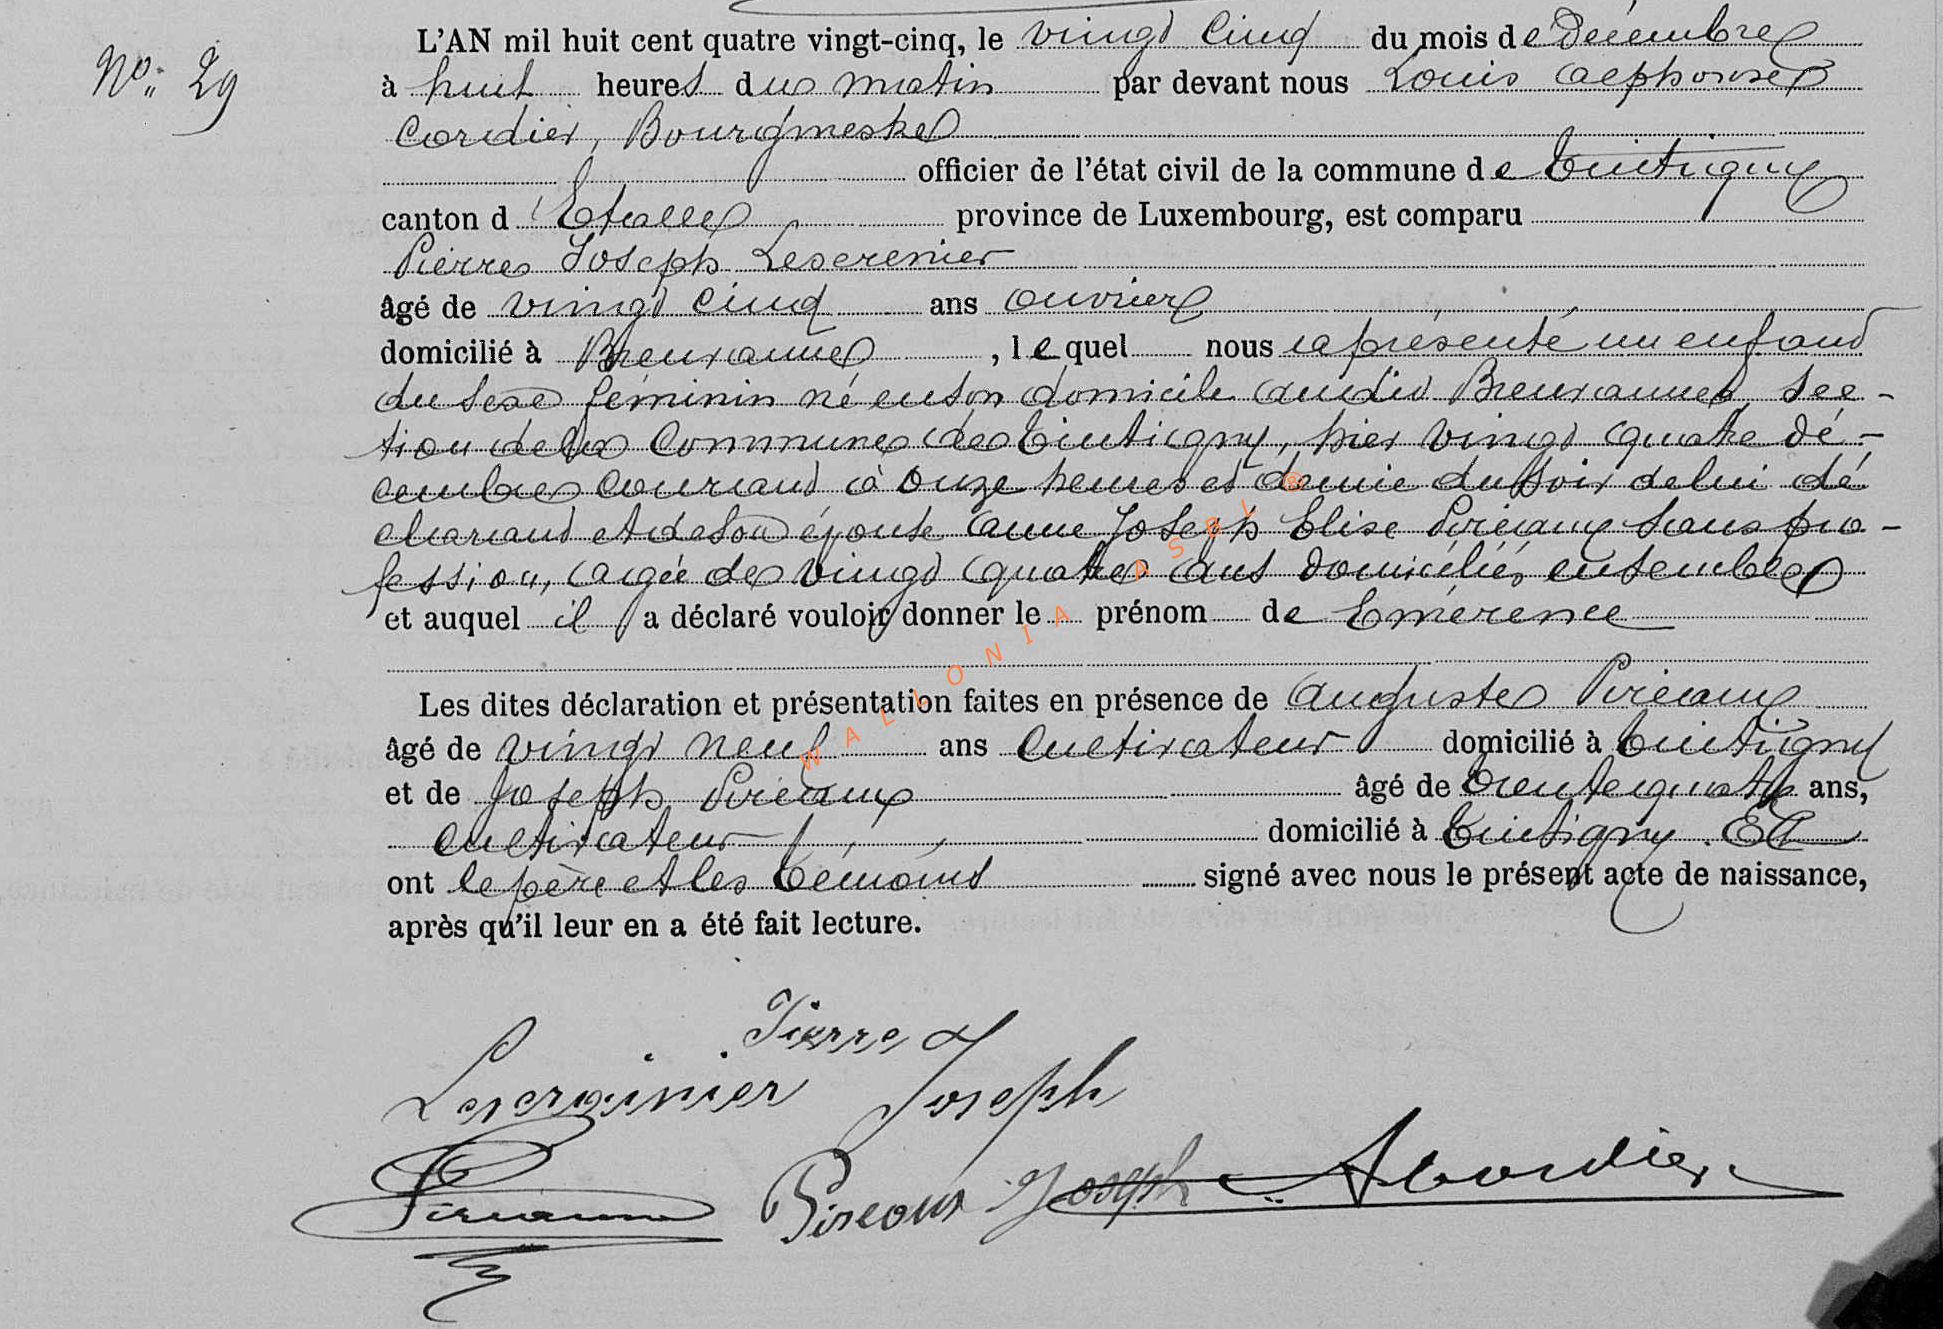 L'AN mil huit cent quatre vingt-cinq, le vingt cinq du mois de Décembre
No. 29
à huit heures du matin par devant nous Louis Alphonse
Cordier, Bourgmestre
officier de l'état civil de la commune de Tintigny
canton d'Etalle province de Luxembourg, est comparu
Pierre Joseph Leserenier
âgé de vingt cinq ans ouvrier
domicilié à Breuvanne, lequel nous a présenté un enfant
du sexe féminin né en son domicile audit Breuvanne, sec-
tion de la Commune de Tintigny, hier vingt quatre dé-
cembre courant à onze heures et demie du soir de lui dé
clarant et de son épouse Anne Joseph Elise Pireaux sans pro-
fession, âgée de vingt quatre ans domiciliés ensemble
et auquel il a déclaré vouloir donner le prénom de Emérence
Les dites déclaration et présentation faites en présence de Auguste Pireaux
âgé de vingt neuf ans Cultivateur domicilié à Tintigny
et de Joseph Pireaux âgé de trente quatre ans,
Cultivateur domicilié à Tintigny. Et
ont le père et les témoins signé avec nous le présent acte de naissance,
après qu'il leur en a été fait lecture.
WALLONIA ASBL ©
Pierre
Leserginier Joseph
Pireaux Pireaux Joseph A Cordier